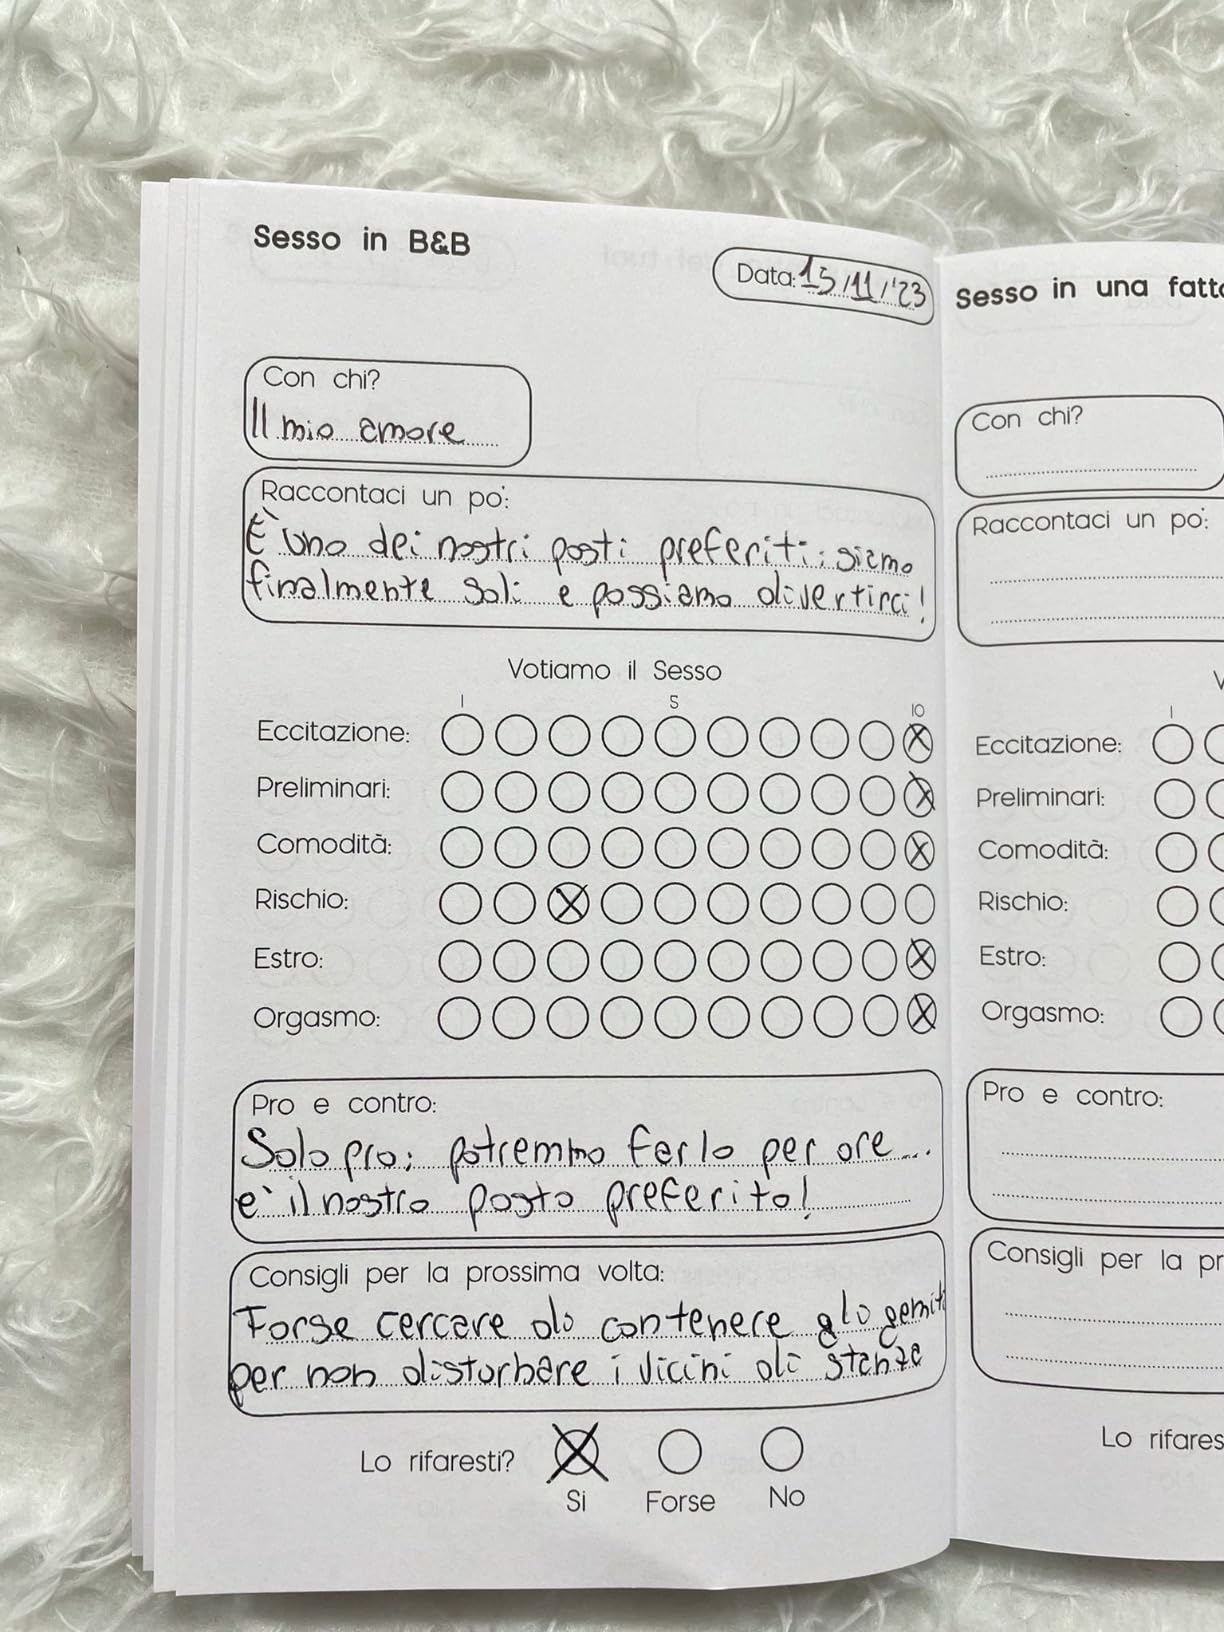 Sesso in B&B
Data: 15/11/'23
Con chi?
Il mio amore
Raccontaci un po':
È uno dei nostri posti preferiti: siamo
finalmente soli e possiamo divertirci!
Votiamo il Sesso
1 5 10
Eccitazione:
Preliminari:
Comodità:
Rischio:
Estro:
Orgasmo:
Pro e contro:
Solo pro; potremmo farlo per ore...
è il nostro posto preferito!
Consigli per la prossima volta:
Forse cercare di contenere gli gemiti
per non disturbare i vicini di stanza
Lo rifaresti?
Si Forse No
Sesso in una fatto
Con chi?
Raccontaci un po':
V
1
Eccitazione:
Preliminari:
Comodità:
Rischio:
Estro:
Orgasmo:
Pro e contro:
Consigli per la pr
Lo rifares